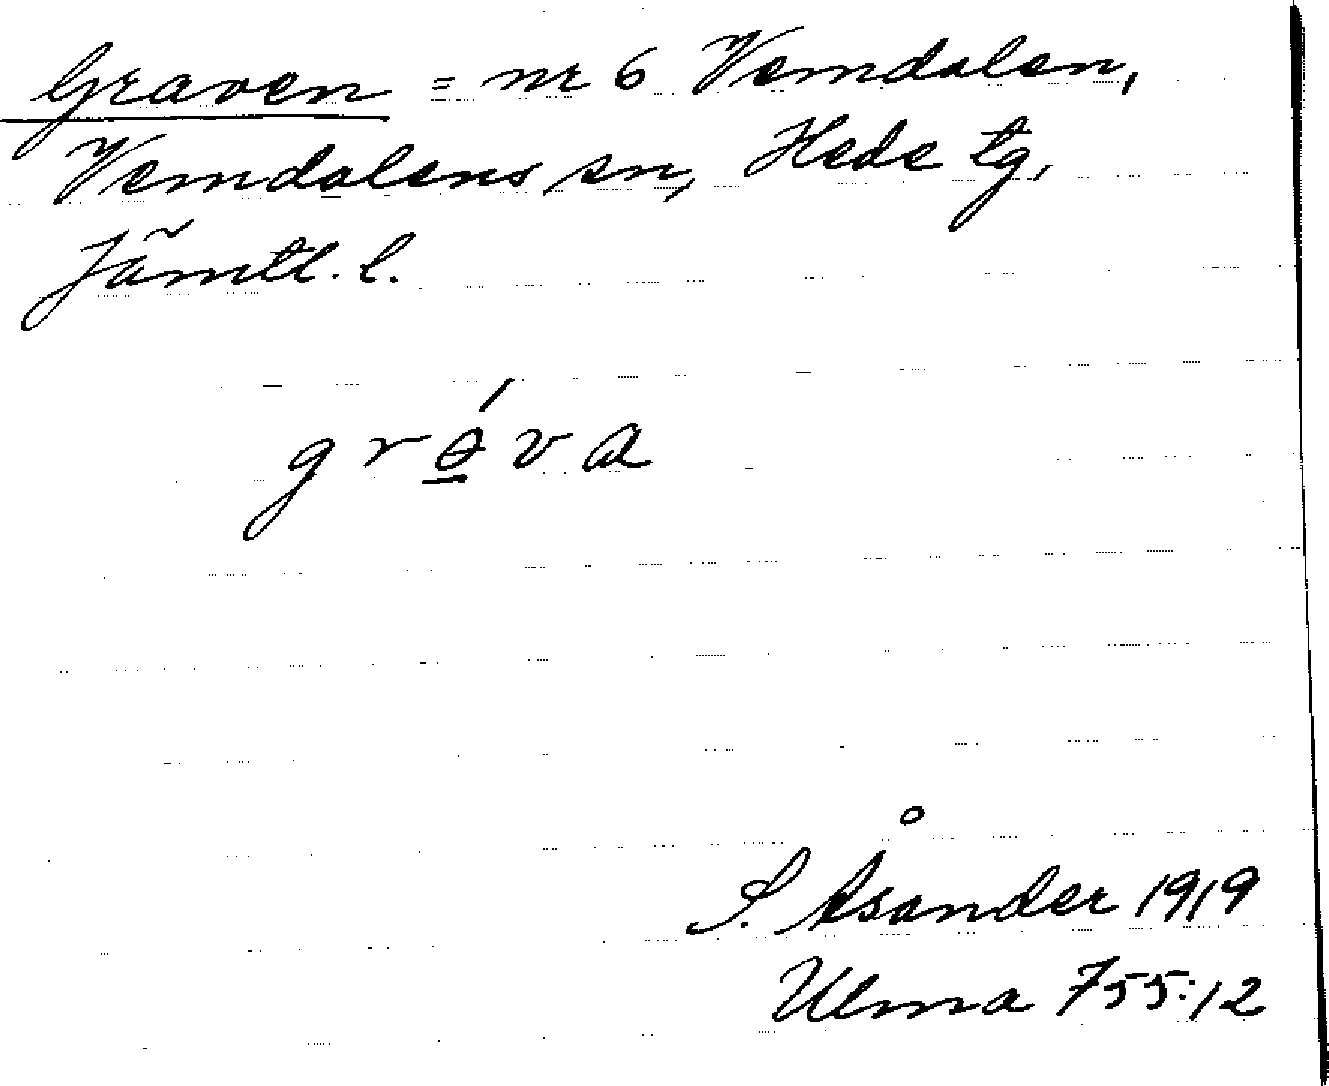 Graven = nr 6 Vemdalen,
Vemdalens sn, Hede tg,
Jämtl. l.
grɵ̱́va
S. Åsander 1919
Ulma 755:12